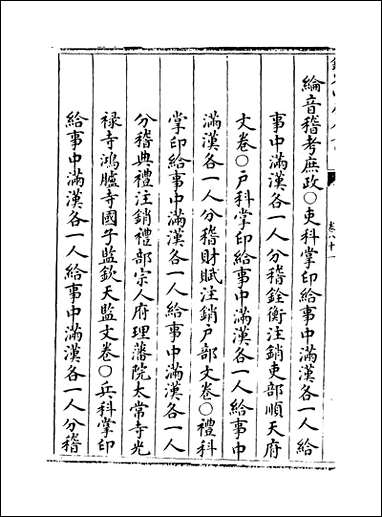 綸音稽考庶政○吏科掌印給事中滿漢各一人給
事中滿漢各一人分稽銓衡注銷吏部順天府
文卷○戶科掌印給事中滿漢各一人給事中
滿漢各一人分稽財賦注銷戶部文卷○禮科
掌印給事中滿漢各一人給事中滿漢各一人
分稽典禮注銷禮部宗人府理藩院太常寺光
祿寺鴻臚寺國子監欽天監文卷○兵科掌印
給事中滿漢各一人給事中滿漢各一人分稽
卷八十一